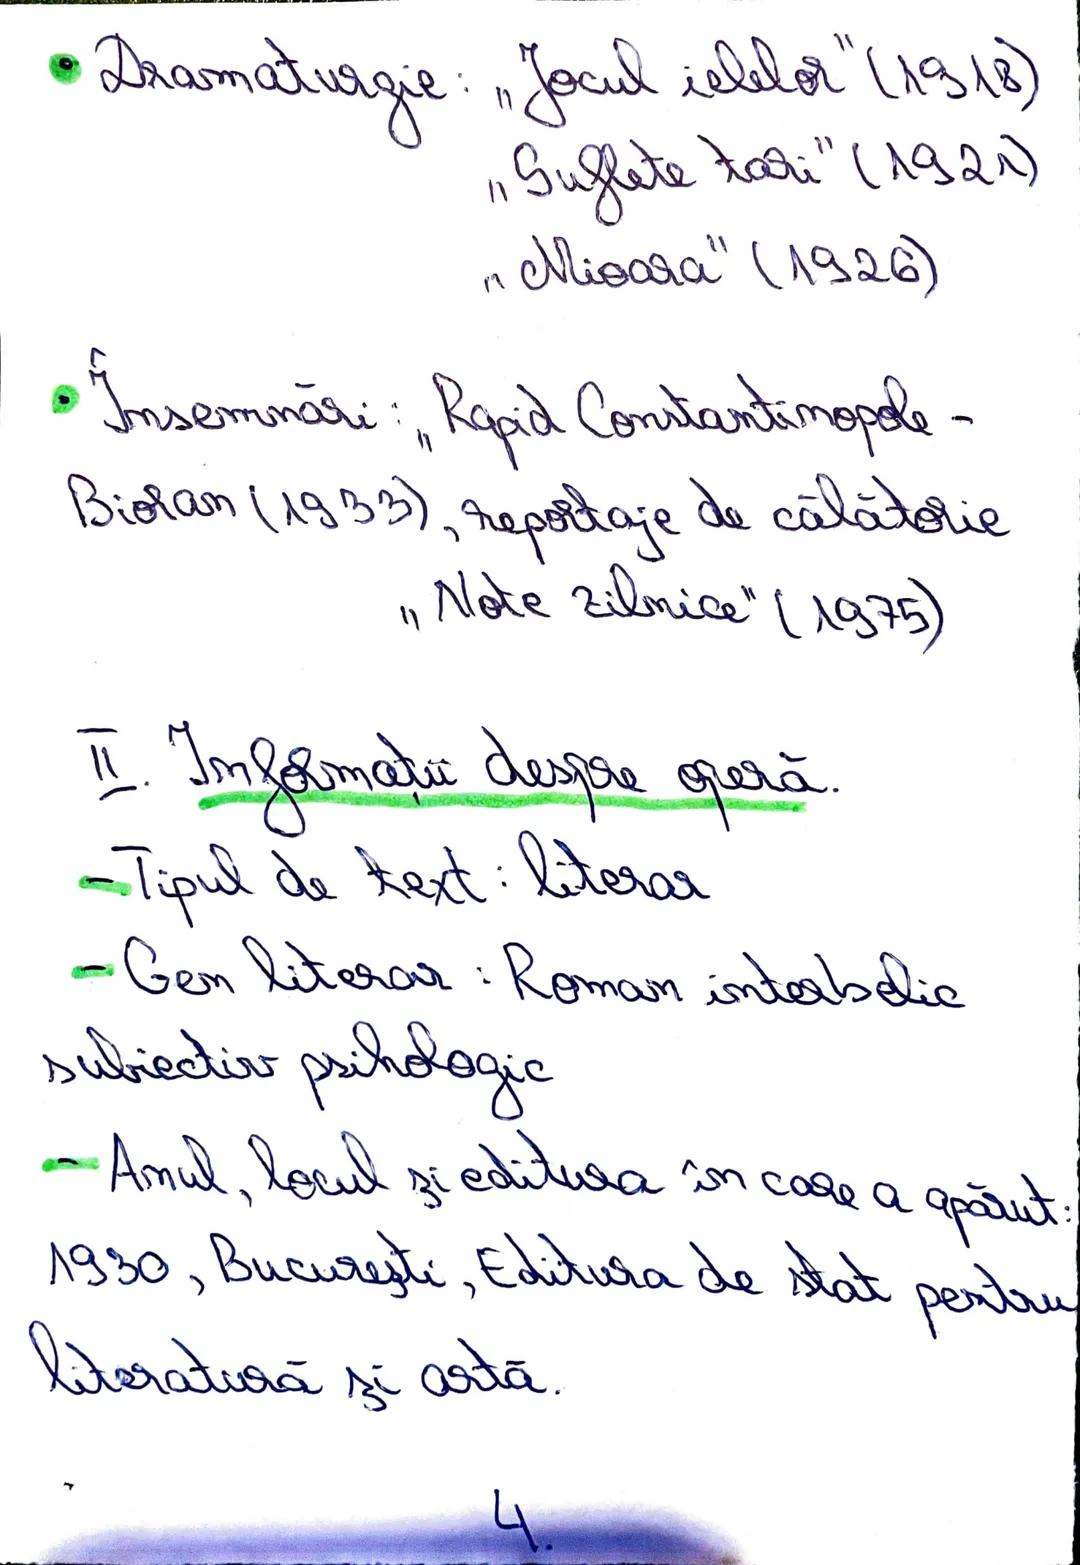 • Dramaturgie: „Jocul ielelor" (1918)
„Suflete tari" (1921)
„Mioara" (1926)
• Însemnări: „Rapid Constantinopole -
Bioran (1933), reportaje de călătorie
„Note zilnice" (1975)
II. Informații despre operă.
- Tipul de text: literar
- Gen literar: Roman interbelic
subiectiv psihologic
- Anul, locul și editura în care a apărut:
1930, București, Editura de stat pentru
literatură și artă.
4.